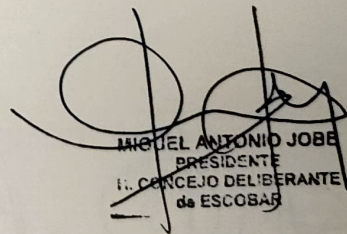 MIGUEL ANTONIO JOBE
PRESIDENTE
H. CONCEJO DELIBERANTE
de ESCOBAR